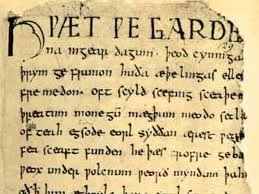 HǷÆT ǷE GARDE
na ingear dagum · þeod cyninga
þrym ge frunon huða æþelingas elle
fremedon · oft scyld scefing sceaþe
þreatum monegū mægþum meodo setla
of teah egsode eorl syððan ærest ƿear
fea sceaft funden he þæs frofre geba
ƿeox under ƿolcnum ƿeorð myndum þah
oð ꝥ him